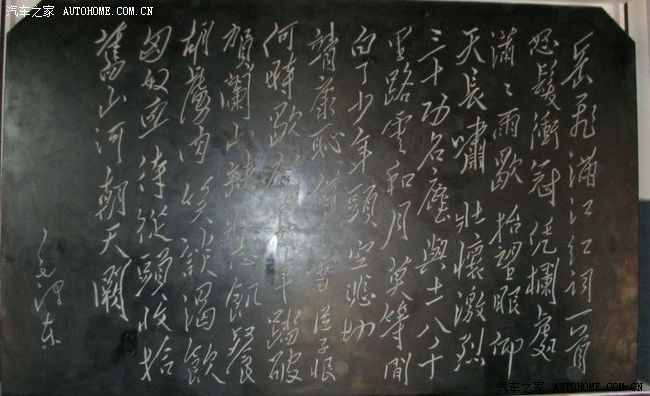 汽车之家 AUTOHOME.COM.CN
岳飛滿江紅詞一首
怒髮衝冠凭欄處
瀟々雨歇抬望眼仰
天長嘯壯懷激烈
三十功名塵與土八千
里路雲和月莫等閒
白了少年頭空悲切
靖康恥雪臣子恨
何時歇駕長車踏破
賀蘭山缺壯志飢餐
胡虜肉笑談渴飲
匈奴血待從頭收拾
舊山河朝天闕
毛澤東
汽车之家 AUTOHOME.COM.CN